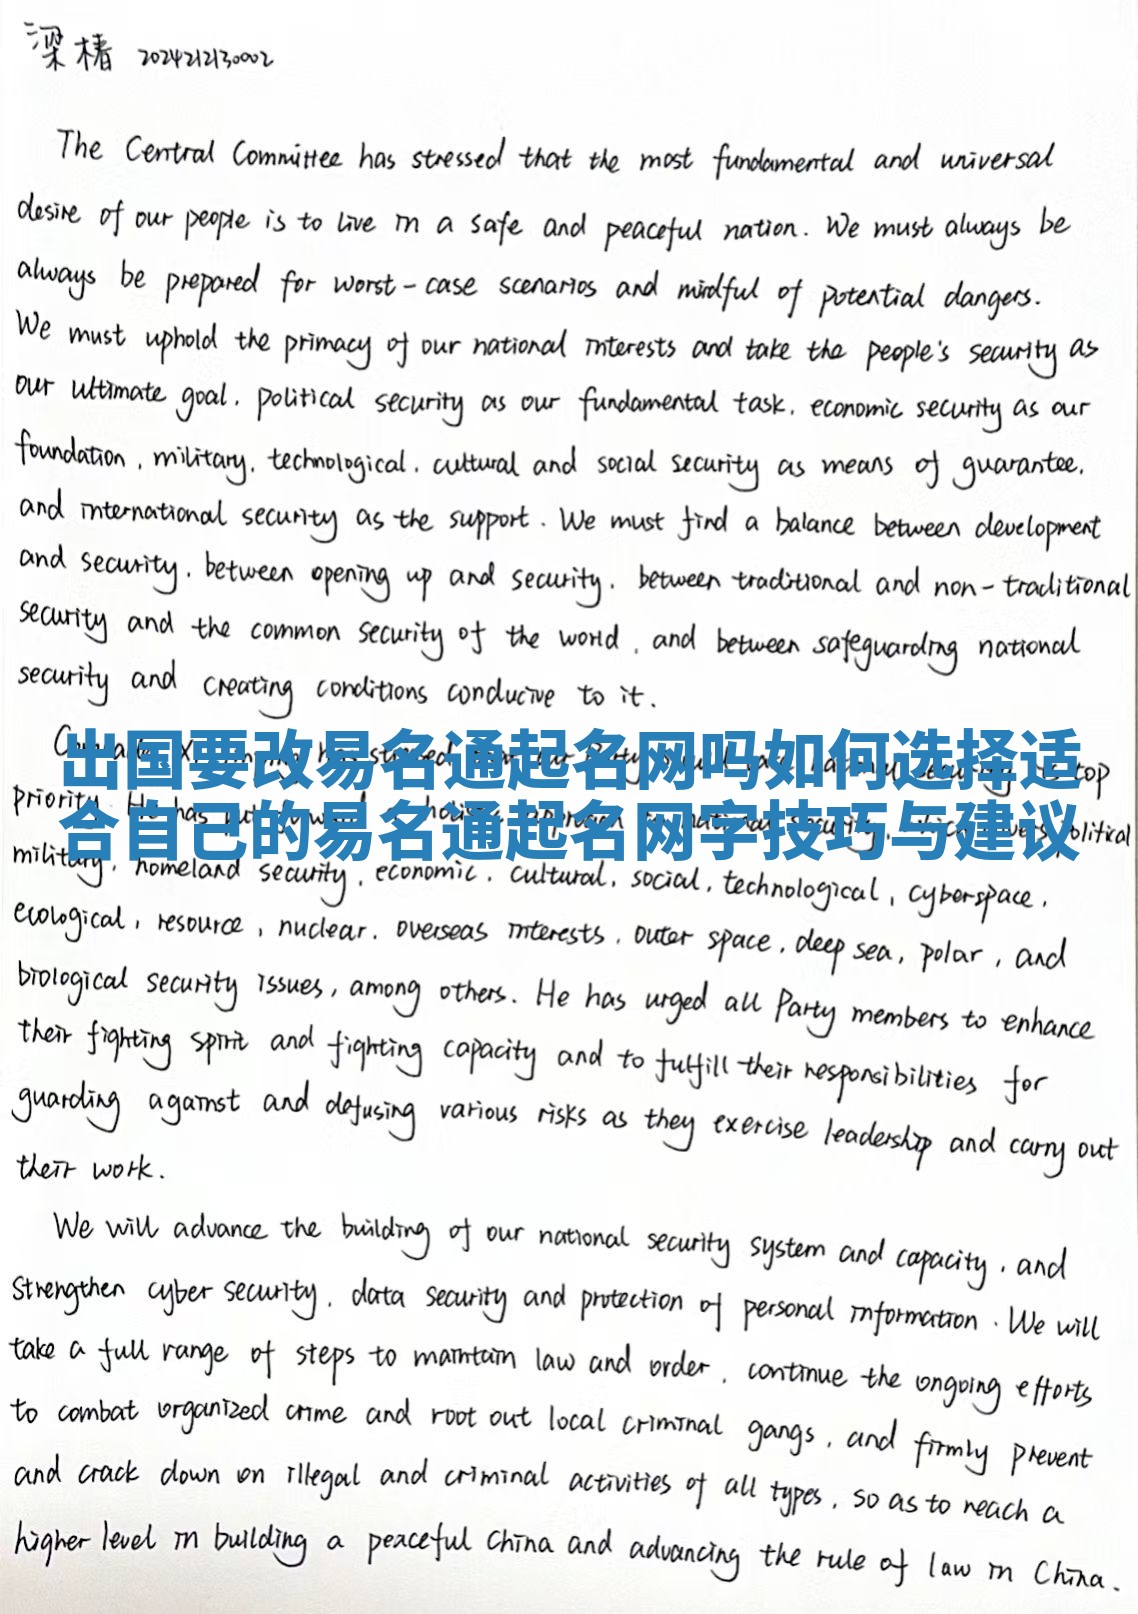 梁椿 2024212130002
The Central Committee has stressed that the most fundamental and universal
desire of our people is to live in a safe and peaceful nation. We must always be
always be prepared for worst-case scenarios and mindful of potential dangers.
We must uphold the primacy of our national interests and take the people's security as
our ultimate goal, political security as our fundamental task, economic security as our
foundation, military, technological, cultural and social security as means of guarantee,
and international security as the support. We must find a balance between development
and security, between opening up and security, between traditional and non-traditional
security and the common security of the world, and between safeguarding national
security and creating conditions conducive to it.
出国要改易名通起名网吗如何选择适
top
priority. He has
合自己的易名通起名网字技巧与建议
political
military, homeland security, economic, cultural, social, technological, cyberspace,
ecological, resource, nuclear, overseas interests, outer space, deep sea, polar, and
biological security issues, among others. He has urged all Party members to enhance
their fighting spirit and fighting capacity and to fulfill their responsibilities for
guarding against and defusing various risks as they exercise leadership and carry out
their work.
We will advance the building of our national security system and capacity, and
strengthen cyber security, data security and protection of personal information. We will
take a full range of steps to maintain law and order, continue the ongoing efforts
to combat organized crime and root out local criminal gangs, and firmly prevent
and crack down on illegal and criminal activities of all types, so as to reach a
higher level in building a peaceful China and advancing the rule of law in China.